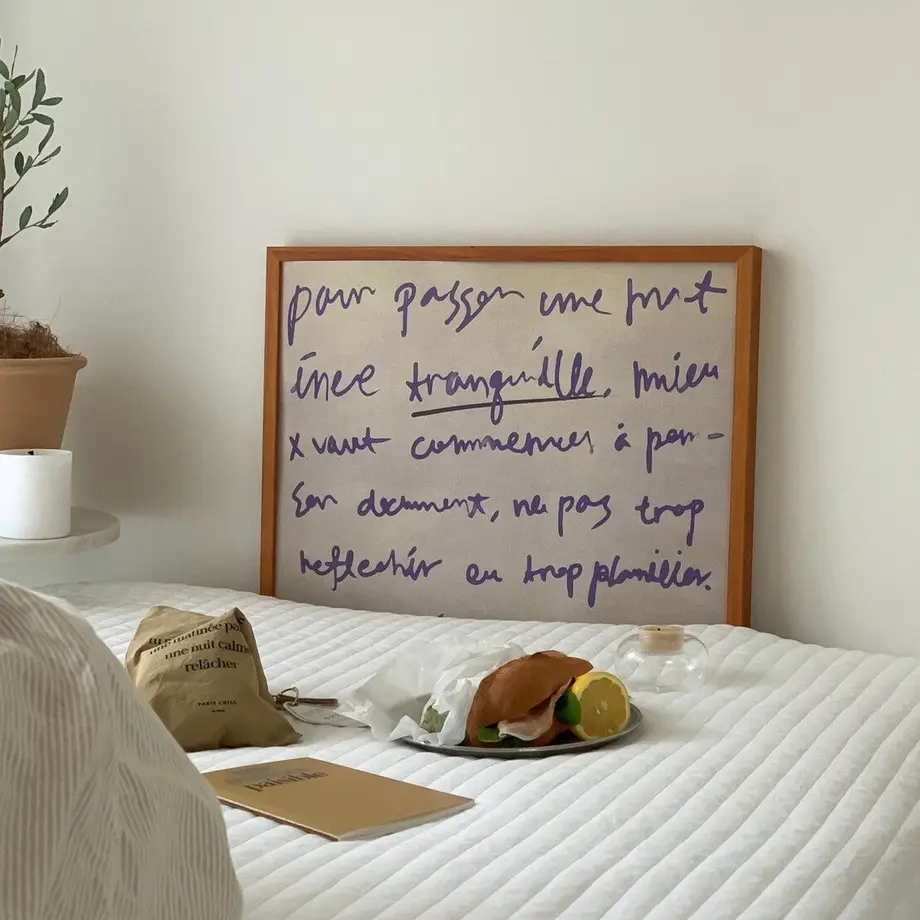 pour passer une mat
inée tranquille, mieu
x vaut commencer à pen-
ser doucement, ne pas trop
reflechir ou trop planifier.
une matinée pa
une nuit calme
relâcher
PARIS CHILL
paisible